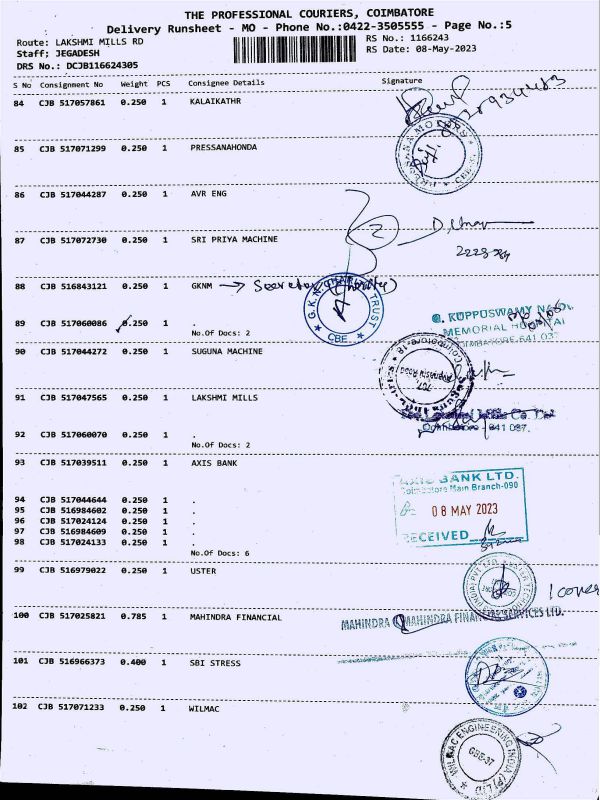 THE PROFESSIONAL COURIERS, COIMBATORE
Delivery Runsheet - MO - Phone No.:0422-3505555 - Page No.:5
Route: LAKSHMI MILLS RD
RS No.: 1166243
Staff: JEGADESH
RS Date: 08-May-2023
DRS No.: DCJB116624305
S No Consignment No Weight PCS Consignee Details Signature
84 CJB 517057861 0.250 1 KALAIKATHR
85 CJB 517071299 0.250 1 PRESSANAHONDA
86 CJB 517044287 0.250 1 AVR ENG
87 CJB 517072730 0.250 1 SRI PRIYA MACHINE
88 CJB 516843121 0.250 1 GKNM
G.K.N. CHARITY TRUST CBE
89 CJB 517060086 0.250 1 .
No.Of Docs: 2
G. KUPPUSWAMY NAIDU
MEMORIAL HOSPITAL
COIMBATORE-641 037
90 CJB 517044272 0.250 1 SUGUNA MACHINE
91 CJB 517047565 0.250 1 LAKSHMI MILLS
92 CJB 517060070 0.250 1 .
No.Of Docs: 2
93 CJB 517039511 0.250 1 AXIS BANK
AXIS BANK LTD.
Coimbatore Main Branch-090
08 MAY 2023
RECEIVED
94 CJB 517044644 0.250 1 .
95 CJB 516984602 0.250 1 .
96 CJB 517024124 0.250 1 .
97 CJB 516984609 0.250 1 .
98 CJB 517024133 0.250 1 .
No.Of Docs: 6
99 CJB 516979022 0.250 1 USTER
1 cover
100 CJB 517025821 0.785 1 MAHINDRA FINANCIAL
MAHINDRA & MAHINDRA FINANCIAL SERVICES LTD.
101 CJB 516966373 0.400 1 SBI STRESS
102 CJB 517071233 0.250 1 WILMAC
WILMAC ENGINEERING INDIA (P) LTD
CBE-37